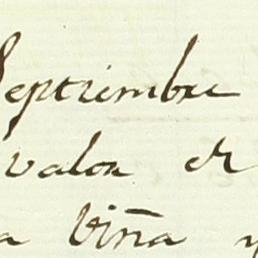 Septiembre
valor el
a Viña y